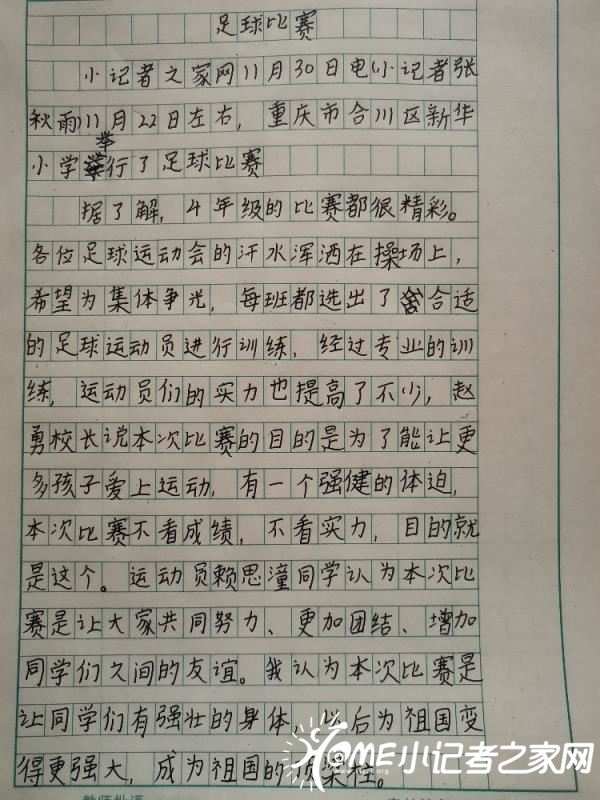 足球比赛
小记者之家网11月30日电(小记者张
秋雨)11月22日左右，重庆市合川区新华
举
小学行了足球比赛
据了解，4年级的比赛都很精彩。
各位足球运动会的汗水浑洒在操场上，
希望为集体争光，每班都选出了合适
的足球运动员进行训练，经过专业的训
练，运动员们的实力也提高了不少，赵
勇校长说本次比赛的目的是为了能让更
多孩子爱上运动，有一个强健的体迫，
本次比赛不看成绩，不看实力，目的就
是这个。运动员赖思潼同学认为本次比
赛是让大家共同努力、更加团结、增加
同学们之间的友谊。我认为本次比赛是
让同学们有强壮的身体，以后为祖国变
得更强大，成为祖国的顶梁柱。
HOME小记者之家网
教师批语